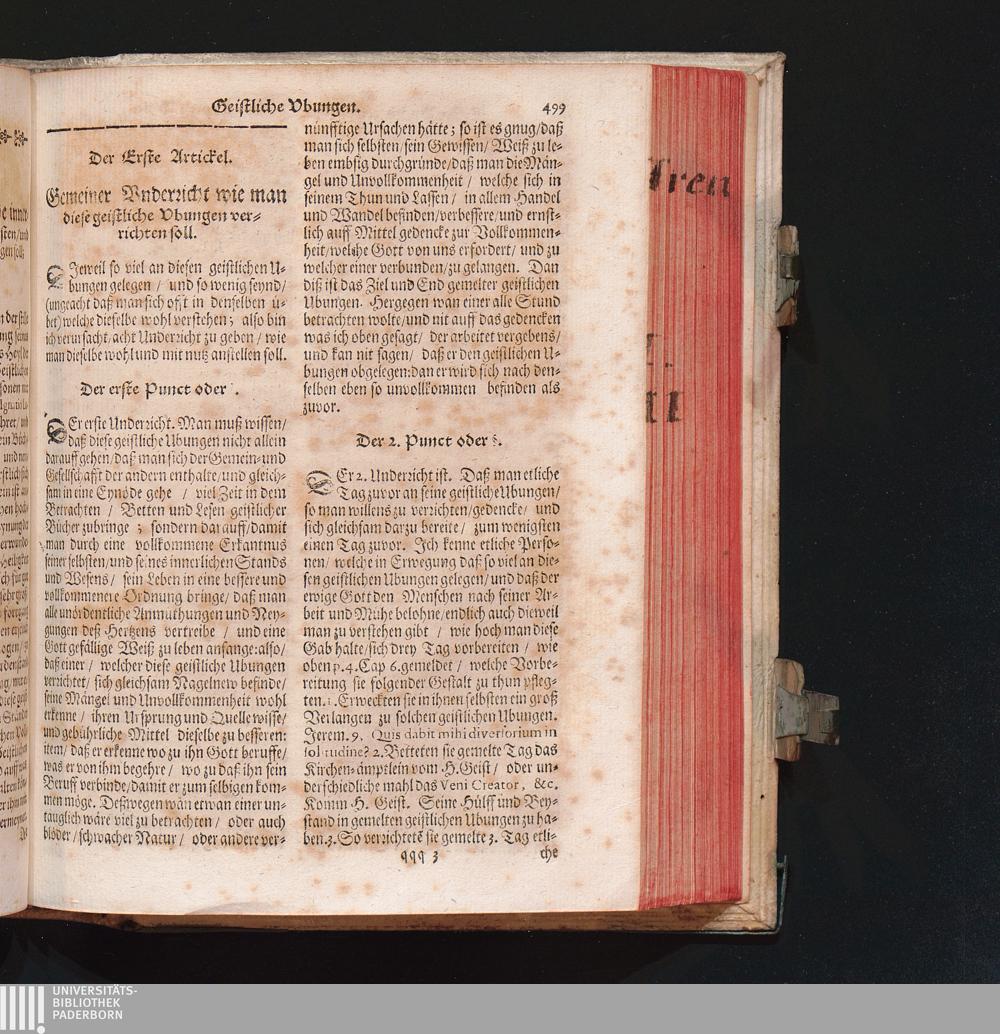 Geistliche Vbungen. 499
Der Erste Artickel.
Gemeiner Vnderricht wie man
diese geistliche Vbungen ver-
richten soll.
DJeweil so viel an diesen geistlichen U-
bungen gelegen / und so wenig seynd/
(ungeacht daß man sich offt in denselben ü-
bet) welche dieselbe wohl verstehen; also bin
ich verursacht/acht Underricht zu geben/ wie
man dieselbe wohl und mit nutz anstellen soll.
Der erste Punct oder
DEr erste Underricht. Man muß wissen/
daß diese geistliche Ubungen nicht allein
darauff gehen/daß man sich der Gemein-und
Gesellschafft der andern enthalte/und gleich-
sam in eine Eynöde gehe / viel Zeit in dem
Betrachten / Betten und Lesen geistlicher
Bücher zubringe ; sondern darauff/damit
man durch eine vollkommene Erkantnus
seiner selbsten/und seines innerlichen Stands
und Wesens/ sein Leben in eine bessere und
vollkommenere Ordnung bringe/ daß man
alle unordentliche Anmuthungen und Ney-
gungen deß Hertzens vertreibe / und eine
Gott gefällige Weiß zu leben anfange:also/
daß einer / welcher diese geistliche Ubungen
verrichtet/ sich gleichsam Nagelnew befinde/
seine Mängel und Unvollkommenheit wohl
erkenne / ihren Ursprung und Quelle wisse/
und gebührliche Mittel dieselbe zu besseren:
item/ daß er erkenne wo zu ihn Gott beruffe/
was er von ihm begehre / wo zu daß ihn sein
Beruff verbinde/damit er zum selbigen kom-
men möge. Deßwegen wän etwan einer un-
tauglich wäre viel zu betrachten / oder auch
blöder /schwacher Natur / oder andere ver-
nünfftige Ursachen hätte ; so ist es gnug/daß
man sich selbsten/ sein Gewissen/ Weiß zu le-
ben embsig durchgründe/daß man die Män-
gel und Unvollkommenheit / welche sich in
seinem Thun und Lassen / in allem Handel
und Wandel befinden/verbessere/und ernst-
lich auff Mittel gedencke zur Vollkommen-
heit/welche Gott von uns erfordert/ und zu
welcher einer verbunden/zu gelangen. Dan
diß ist das Ziel und End gemelter geistlichen
Ubungen. Hergegen wan einer alle Stund
betrachten wolte/und nit auff das gedencken
was ich oben gesagt/ der arbeitet vergebens/
und kan nit sagen/ daß er den geistlichen U-
bungen obgelegen:dan er wird sich nach den-
selben eben so unvollkommen befinden als
zuvor.
Der 2. Punct oder §.
DEr 2. Underricht ist. Daß man etliche
Tag zuvor an seine geistliche Ubungen/
so man willens zu verrichten/gedencke/ und
sich gleichsam darzu bereite / zum wenigsten
einen Tag zuvor. Ich kenne etliche Perso-
nen/ welche in Erwegung daß so viel an die-
sen geistlichen Ubungen gelegen/und daß der
ewige Gott den Menschen nach seiner Ar-
beit und Mühe belohne/endlich auch dieweil
man zu verstehen gibt / wie hoch man diese
Gab halte/sich drey Tag vorbereiten / wie
oben p.4.Cap 6.gemeldet / welche Vorbe-
reitung sie folgender Gestalt zu thun pfleg-
ten.1.Erweckten sie in ihnen selbsten ein groß
Verlangen zu solchen geistlichen Ubungen.
Jerem.9. Quis dabit mihi diversorium in
solitudine? 2.Betteten sie gemelte Tag das
Kirchen-ämptlein vom H.Geist/ oder un-
derschiedliche mahl das Veni Creator, &c.
Komm H. Geist. Seine Hülff und Bey-
stand in gemelten geistlichen Ubungen zu ha-
ben.3.So verrichtetē sie gemelte 3. Tag etli-
qqq 3 che
UNIVERSITÄTS-
BIBLIOTHEK
PADERBORN